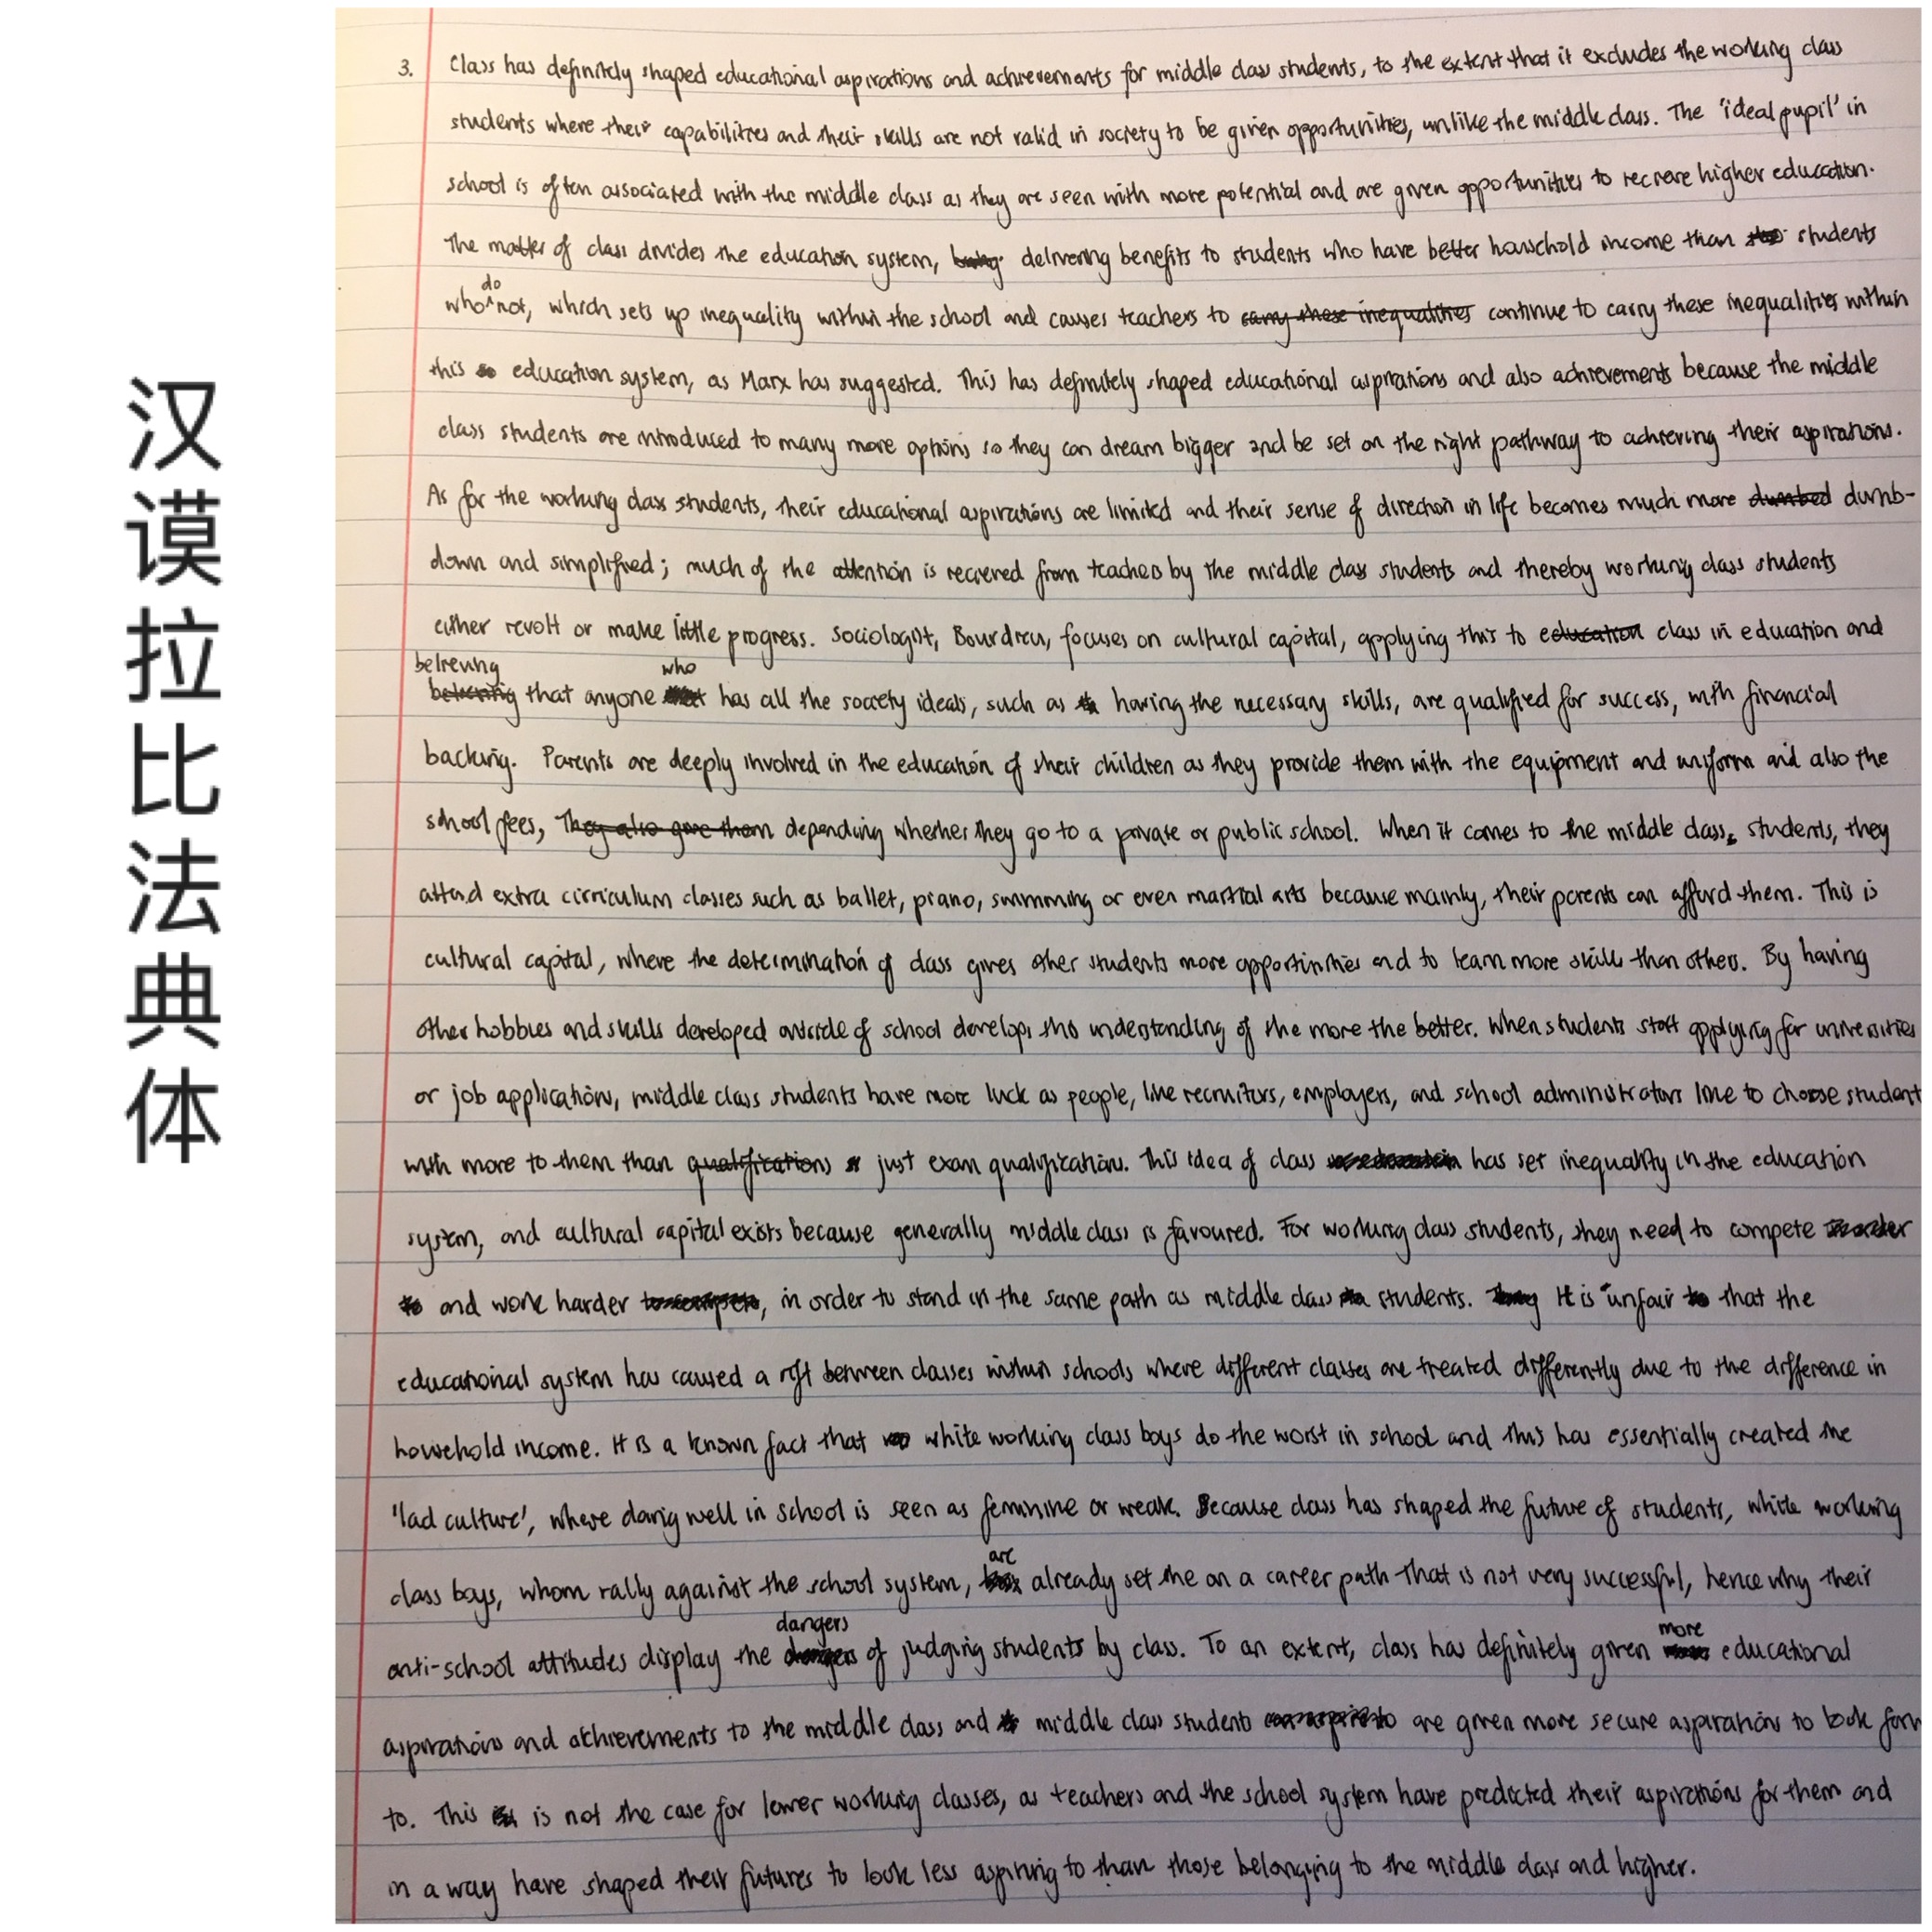 汉谟拉比法典体
3. Class has definitely shaped educational aspirations and achievements for middle class students, to the extent that it excludes the working class
students where their capabilities and their skills are not valid in society to be given opportunities, unlike the middle class. The 'ideal pupil' in
school is often associated with the middle class as they are seen with more potential and are given opportunities to recieve higher education.
The matter of class divides the education system, delivering benefits to students who have better household income than students
who do not, which sets up inequality within the school and causes teachers to carry these inequalities continue to carry these inequalities within
this education system, as Marx has suggested. This has definitely shaped educational aspirations and also achievements because the middle
class students are introduced to many more options so they can dream bigger and be set on the right pathway to achieving their aspirations.
As for the working class students, their educational aspirations are limited and their sense of direction in life becomes much more dumbed dumb-
down and simplified; much of the attention is recieved from teachers by the middle class students and thereby working class students
either revolt or make little progress. Sociologist, Bourdieu, focuses on cultural capital, applying this to education class in education and
believing that anyone who has all the society ideals, such as having the necessary skills, are qualified for success, with financial
backing. Parents are deeply involved in the education of their children as they provide them with the equipment and uniform and also the
school fees, They also gave them depending whether they go to a private or public school. When it comes to the middle class students, they
attend extra cirriculum classes such as ballet, piano, swimming or even martial arts because mainly, their parents can afford them. This is
cultural capital, where the determination of class gives other students more opportinities and to learn more skills than others. By having
other hobbies and skills developed outside of school develops this understanding of the more the better. When students start applying for universities
or job applications, middle class students have more luck as people, like recruiters, employers, and school administrators like to choose student
with more to them than qualifications just exam qualifications. This idea of class has set inequality in the education
system, and cultural capital exists because generally middle class is favoured. For working class students, they need to compete
and work harder, in order to stand in the same path as middle class students. It is unfair that the
educational system has caused a rift between classes within schools where different classes are treated differently due to the difference in
household income. It is a known fact that white working class boys do the worst in school and this has essentially created the
'lad culture', where doing well in school is seen as feminine or weak. Because class has shaped the future of students, white working
class boys, whom rally against the school system, are already set the on a career path that is not very successful, hence why their
anti-school attitudes display the dangers of judging students by class. To an extent, class has definitely given more educational
aspirations and achievements to the middle class and middle class students are given more secure aspirations to look forw
to. This is not the case for lower working classes, as teachers and the school system have predicted their aspirations for them and
in a way have shaped their futures to look less aspiring to than those belonging to the middle class and higher.